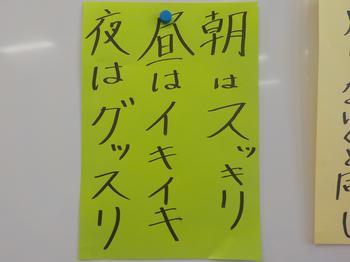 朝はスッキリ
昼はイキイキ
夜はグッスリ